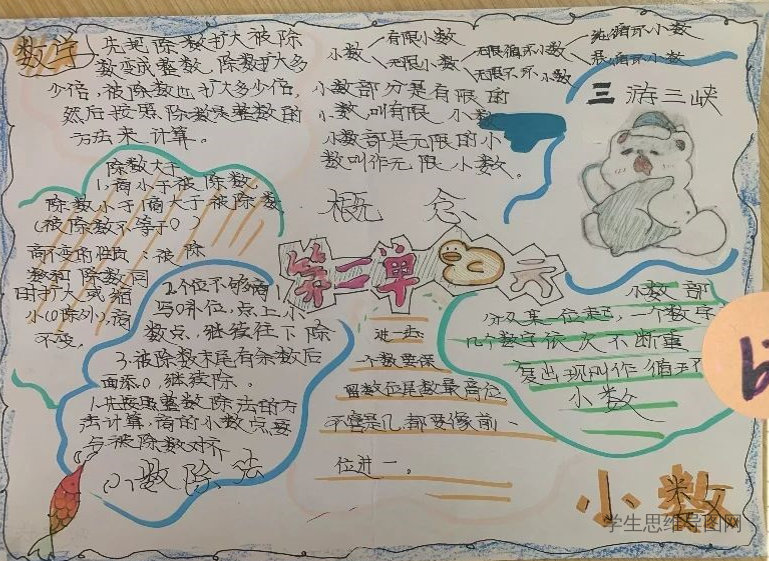 数学
先把除数扩大被除
数变成整数,除数扩大多
少倍,被除数也扩大多少倍,
然后按照除数是整数的
方法来计算。
小数
有限小数
无限小数
无限循环小数
无限不环小数
纯循环小数
混循环小数
小数部分是有限的
小数叫有限小数
小数部是无限的小
数叫作无限小数。
概念
三游三峡
除数大于
1,商小于被除数,
除数小于1商大于被除数
(被除数不等于0)
商不变的性质:被除
数和除数同
时扩大或缩
小(0除外),商
不变。
第二单元
2.个位不够商1,
写0补位,点上小
数点,继续往下除
3.被除数末尾有余数后
面添0,继续除。
1.先按照整数除法的方
法计算,商的小数点要
与被除数对齐
小数除法
进一法
一个数要保
留数位尾数最高位
不管是几都要像前一
位进一。
小数部
分从某一位起,一个数字
几个数字依次不断重
复出现叫作循环
小数
小数
学生思维导图网